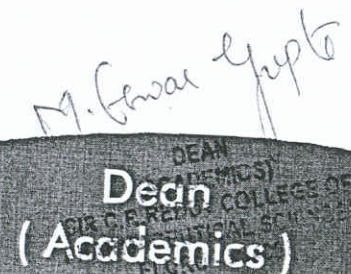 M. Eswar Gupta
DEAN
(ACADEMICS)
Dean
SIR C.R.REDDY COLLEGE OF
( Academics )